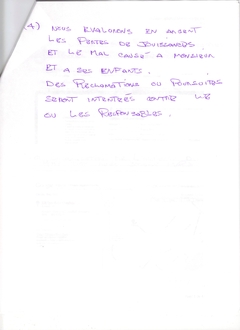 (4) NOUS EVALUERONS EN ARGENT
LES PERTES DE JOUISSANCES
ET LE MAL CAUSÉ A MONSIEUR
ET A SES ENFANTS.
DES RECLAMATIONS OU POURSUITES
SERONT INTENTEES CONTRE LE
OU LES RESPONSABLES.